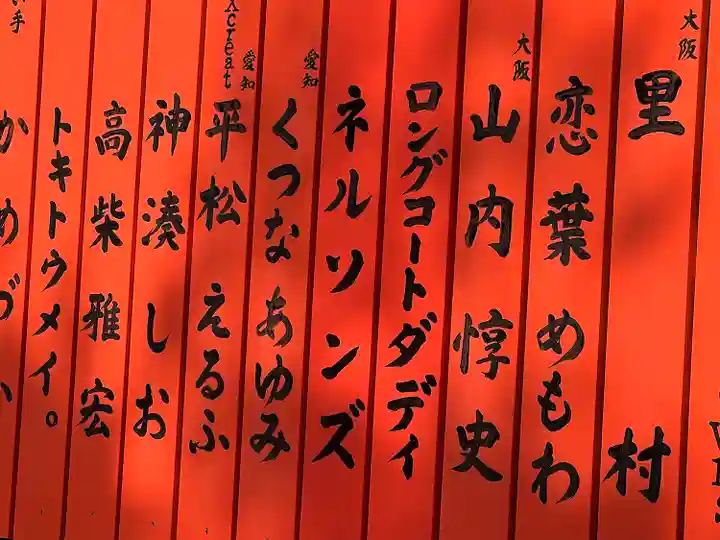 大阪 里村
恋葉めもわ
大阪 山内惇史
ロングコートダディ
ネルソンズ
愛知 くつなあゆみ
愛知 Xcreat 平松えるふ
神湊しお
高柴雅宏
トキトウメイ。